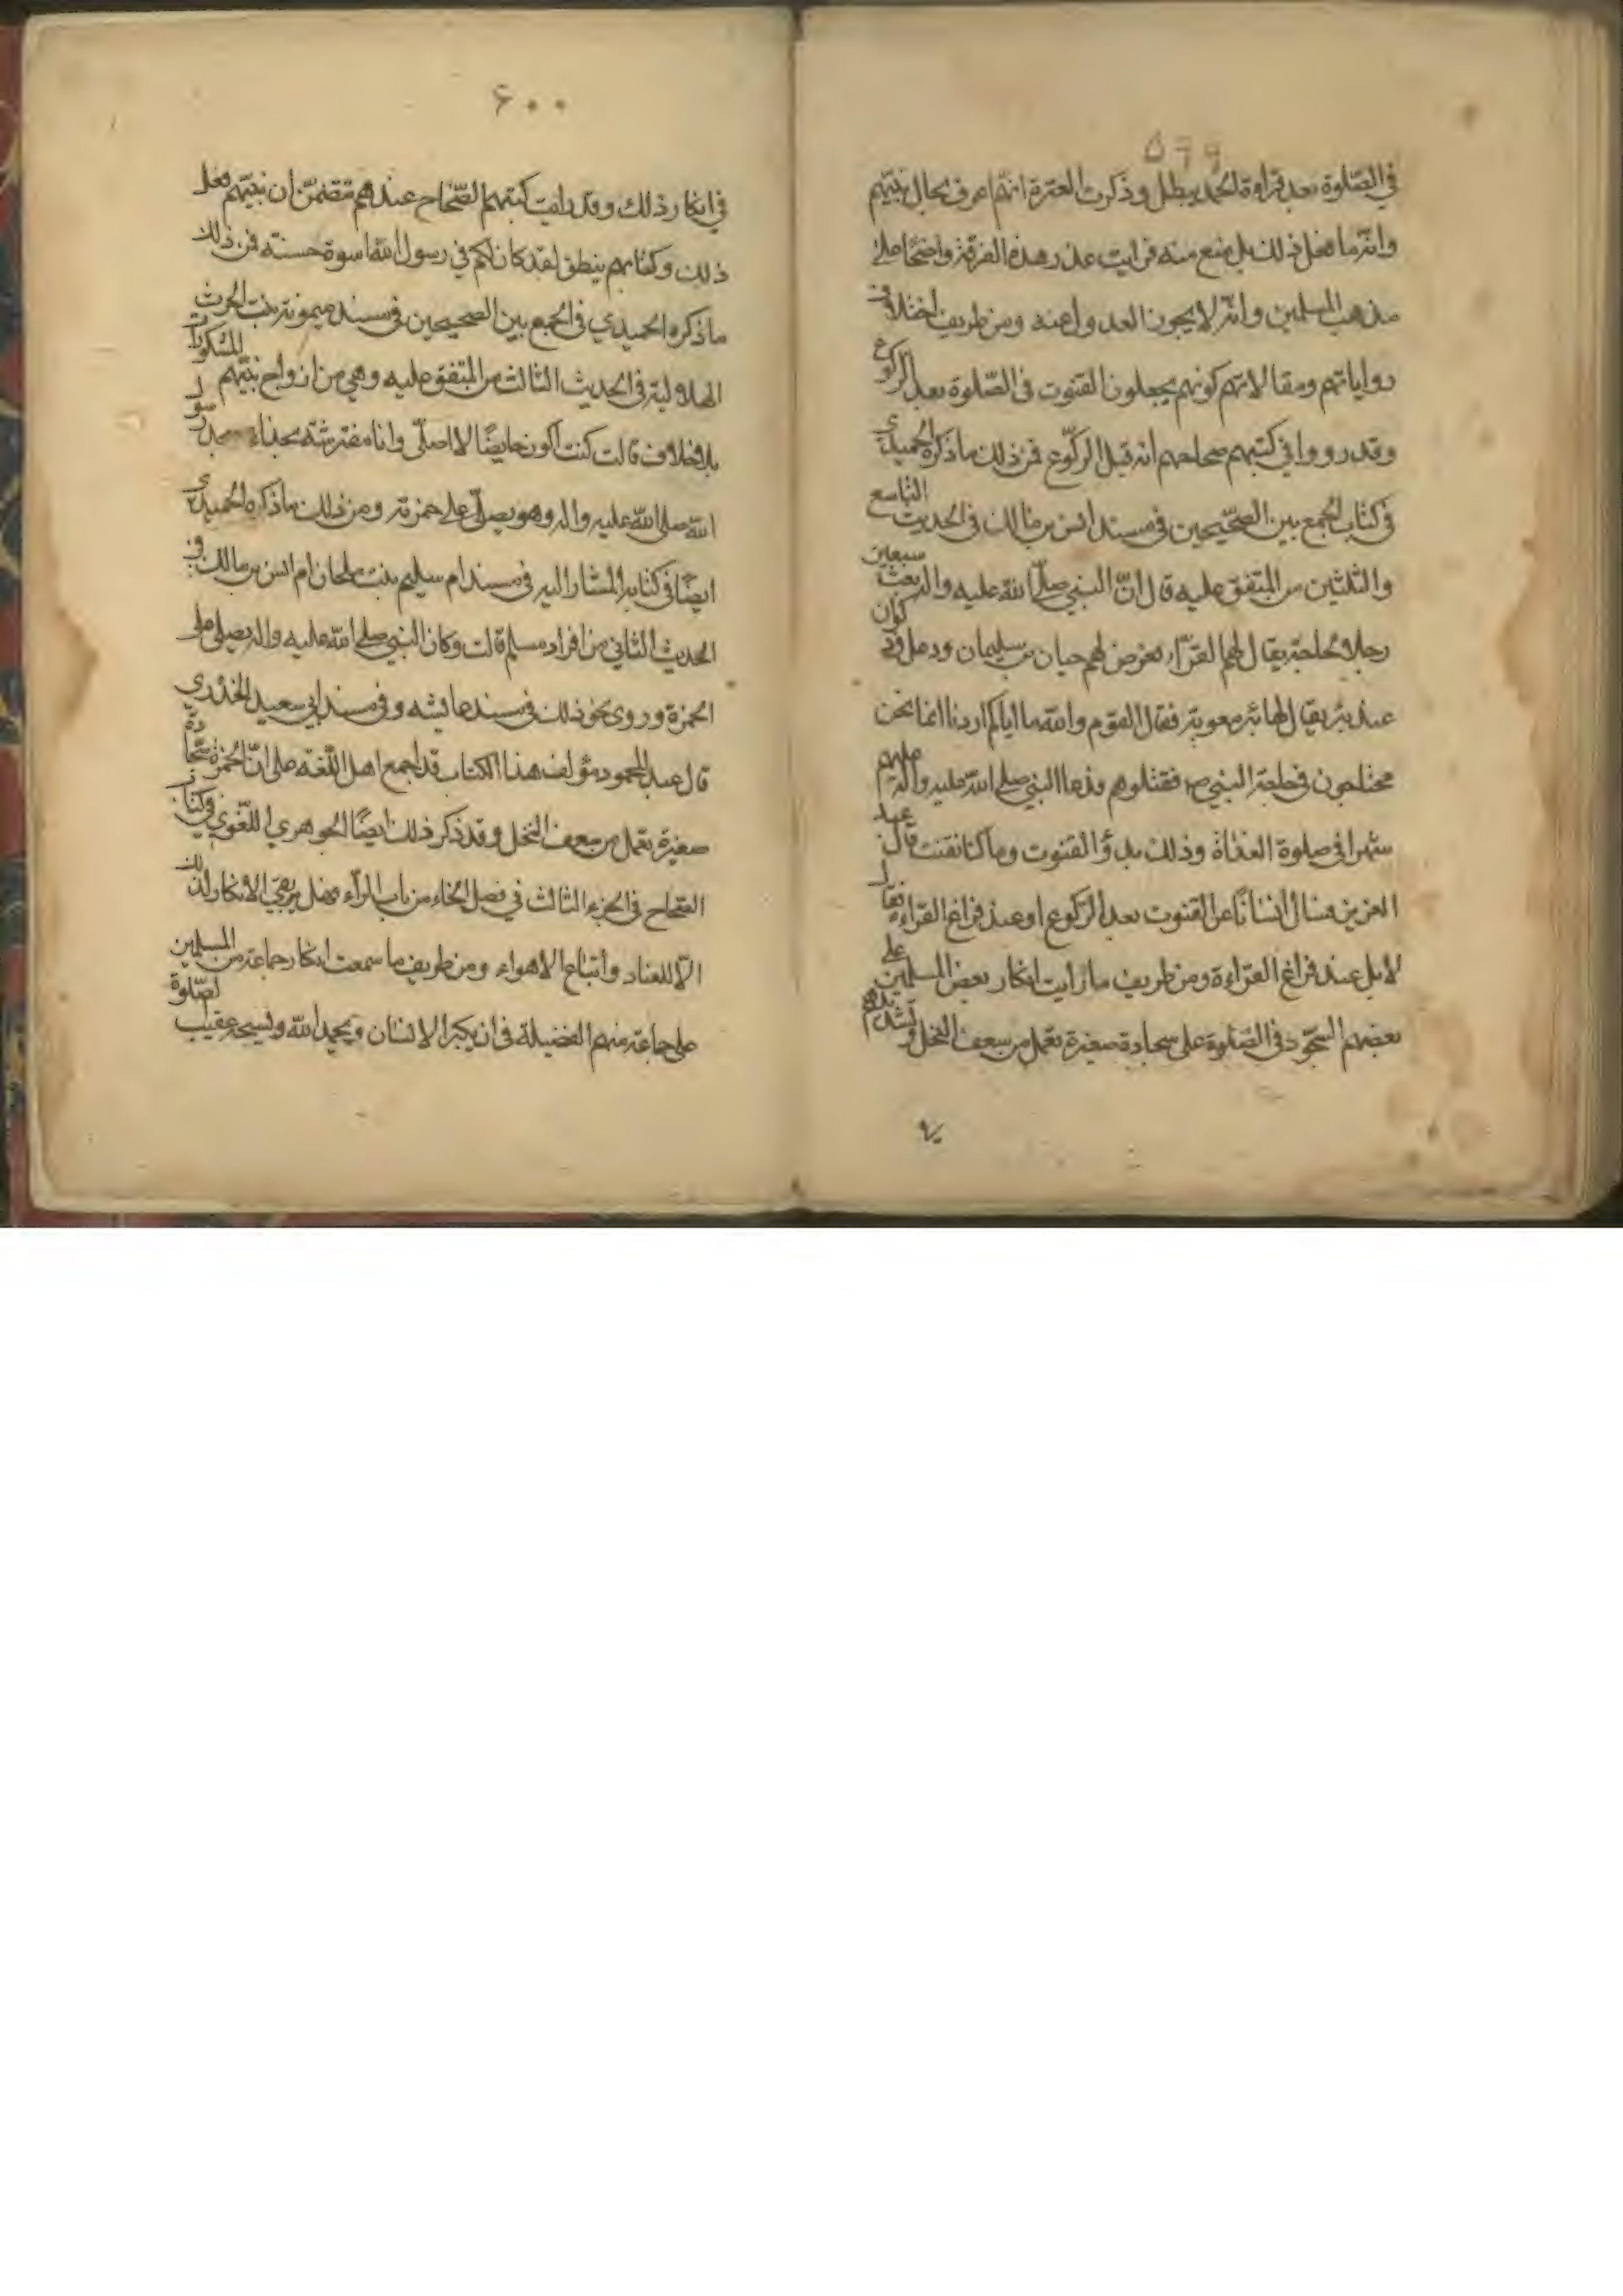 ٥٩٩
في الصّلوة بعد قراءة الحمد يبطل وذكرت العترة انهم اعرف بحال نبيّهم
وانّه ما فعل ذلك بل منع منه فرايت عذر هذه الفرقة واضحًا على
مذهب المسلمين وانّه لا يجوز العدول عنه ومن طريف اختلاف
رواياتهم ومقالاتهم كونهم يجعلون القنوت في الصّلوة بعد الركوع
وقد رووا في كتبهم صحاحهم انه قبل الركوع فمن ذلك ما ذكره الحميدي
في كتاب الجمع بين الصّحيحين في مسند انس بن مالك في الحديث التاسع
والثلثين من المتفق عليه قال انّ النبي صلّى الله عليه واله بعث سبعين
رجلا لحاجة يقال لهم القرّاء فعرض لهم حيان من سليمان ورعل وذكوان
عند بئر يقال لها بئر معوية فقال القوم والله ما اياكم اردنا انما نحن
مختلجون في حاجة النبي ص فقتلوهم فدعا النبي صلى الله عليه واله عليهم
شهرا في صلوة الغداة وذلك بدؤ القنوت وما كنا نقنت قال عبد
العزيز فسال انسانا عن القنوت بعد الركوع او عند فراغ القراءة فقال
لا بل عند فراغ القراءة ومن طريف ما رايت انكار بعض المسلمين على
بعضهم السجود في الصّلوة على سجادة صغيرة تعمل من سعف النخل وتشددهم
٦٠٠
في انكار ذلك وقد رايت كتبهم الصّحاح عندهم تتضمّن ان نبيّهم فعل
ذلك وكتابهم ينطق لقد كان لكم في رسول الله اسوة حسنة فمن ذلك
ما ذكره الحميدي في الجمع بين الصحيحين في مسند ميمونة بنت الحرث
الهلالية في الحديث الثالث من المتفق عليه وهي من ازواج نبيّهم المشكورات
بلا خلاف قالت كنت اكون حايضًا لا اصلّي وانا مفترشة بحذاء مسجد رسول
الله صلى الله عليه واله وهو يصلّي على خمرته ومن ذلك ما ذكره الحميدي
ايضًا في كتابه المشار اليه في مسند ام سليم بنت ملحان ام انس بن مالك في
الحديث الثاني من افراد مسلم قالت وكان النبي صلى الله عليه واله يصلي على
الخمرة وروى نحو ذلك في مسند عايشه وفي مسند ابي سعيد الخدري
قال عبد المحمود مؤلف هذا الكتاب قد اجمع اهل اللّغة على انّ الخمرة سجّادة
صغيرة تعمل من سعف النخل وقد ذكر ذلك ايضًا الجوهري اللّغوي في كتاب
الصّحاح في الجزء الثالث في فصل الخاء من باب الراء فهل يبقى الانكار لذلك
الّا للعناد واتباع الاهواء ومن طريف ما سمعت انكار جماعة من المسلمين
على جماعة منهم الفضيلة في ان يكبر الانسان ويحمد الله ويسبحه عقيب الصّلوة